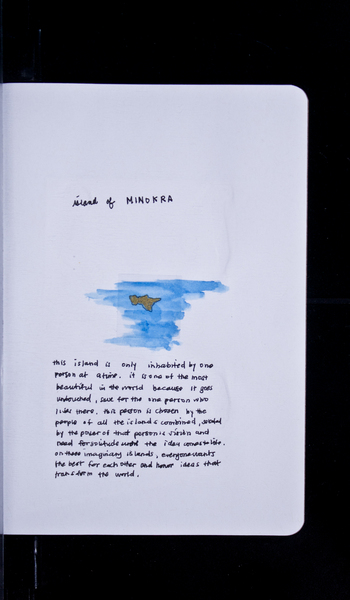 island of MINOKRA
this island is only inhabited by one
person at a time. it is one of the most
beautiful in the world because it goes
untouched, save for the one person who
lives there. this person is chosen by the
people of all the islands combined, swayed
by the power of that person's vision and
need for solitude until the idea comes to life.
on these imaginary islands, everyone wants
the best for each other and honor ideas that
transform the world.